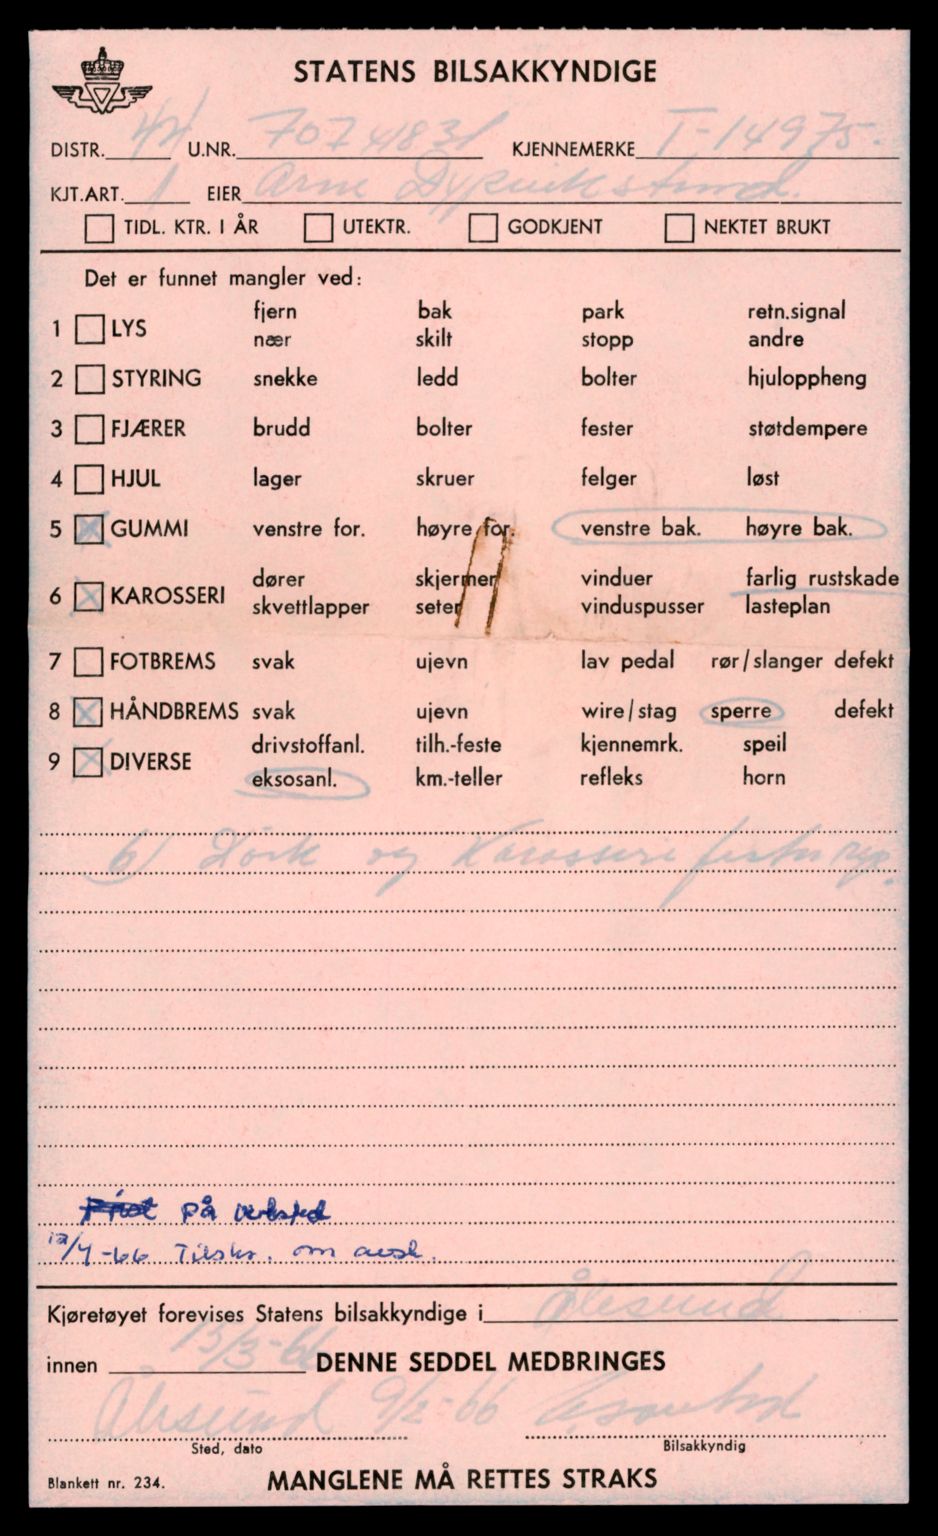 STATENS BILSAKKYNDIGE
DISTR. 44 U.NR. 70741831 KJENNEMERKE T-14975.
KJT.ART. 1 EIER Arne
TIDL. KTR. I ÅR UTEKTR. GODKJENT NEKTET BRUKT
Det er funnet mangler ved:
1 LYS fjern bak park retn.signal
nær skilt stopp andre
2 STYRING snekke ledd bolter hjuloppheng
3 FJÆRER brudd bolter fester støtdempere
4 HJUL lager skruer felger løst
5 GUMMI venstre for. høyre for. venstre bak. høyre bak.
6 KAROSSERI dører skjermer vinduer farlig rustskade
skvettlapper seter vinduspusser lasteplan
7 FOTBREMS svak ujevn lav pedal rør/slanger defekt
8 HÅNDBREMS svak ujevn wire/stag sperre defekt
9 DIVERSE drivstoffanl. tilh.-feste kjennemrk. speil
eksosanl. km.-teller refleks horn
6) og Karosseri
på verksted
12/4-66 Tilskr. om avsk.
Kjøretøyet forevises Statens bilsakkyndige i Ålesund
innen 15/3-66 DENNE SEDDEL MEDBRINGES
Ålesund 9/2-66
Sted, dato Bilsakkyndig
Blankett nr. 234. MANGLENE MÅ RETTES STRAKS